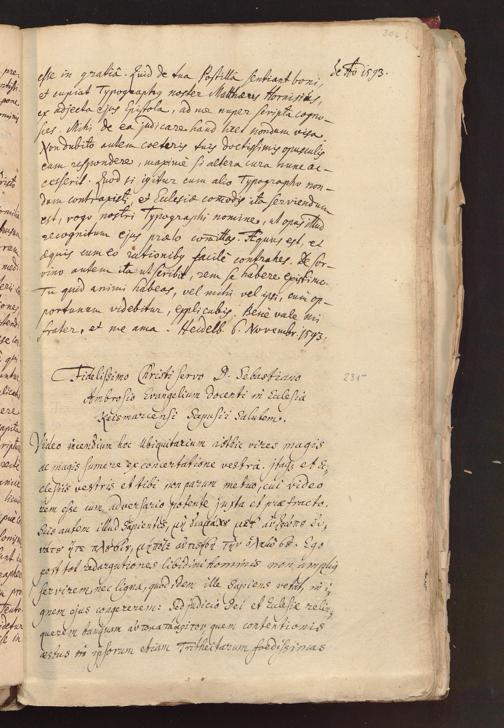 306
esse in gratiâ. Quid de tua Postilla sentiant boni,
de Aō 1593.
et cupiat Typographus noster Matthaeus Harnisius,
ex adjecta ejus Epistola, ad me nuper scripta cognos-
ces. Mihi de ea judicare haud licet nondum visa.
Non dubito autem coeteris tuis doctissimis opusculis
eam respondere, maximè si altera cura nunc ac-
cesserit. Quod si igitur cum alio Typographo non-
dum contraxisti, et Ecclesiae comodis ita serviendum
est, rogo nostri Typographi nomine, ut opus istud
recognitum ejus praelo comittas. Aequus est, et
aequis cum eo rationibus facilè contrahes. De
autem ita ut scribit, rem se habere existimo.
Tu quid animi habeas, vel mihi vel ipsi, cum op-
portunum videbitur, explicabis. Bene vale mi
frater, et me ama. Heidelb. 6. Novembr. 1593.
Fidelissimo Christi servo D. Sebastiano
231
Ambrosio Evangelium docenti in Ecclesia
Kesmarcensi Sepusii Salutem.
Video incendium hoc Ubiquitarium isthic vires magis
ac magis sumere ex concertatione vestrâ. Itaque et Ec-
clesiis vestris et tibi non parum metuo, cui video
rem esse cum adversario potente juxta et praefracto.
Scis autem illud Sapientis, μὴ διαμάχου μετ'
Ego
post tot redargutiones libidini hominis non amplius
servirem, nec ligna, quod idem ille Sapiens vetat, in i-
gnem ejus congererem: sed judicio Dei et Ecclesiae relin-
querem tanquam quem contentionis
aestus in ipsorum etiam Tritheitarum foedissimas